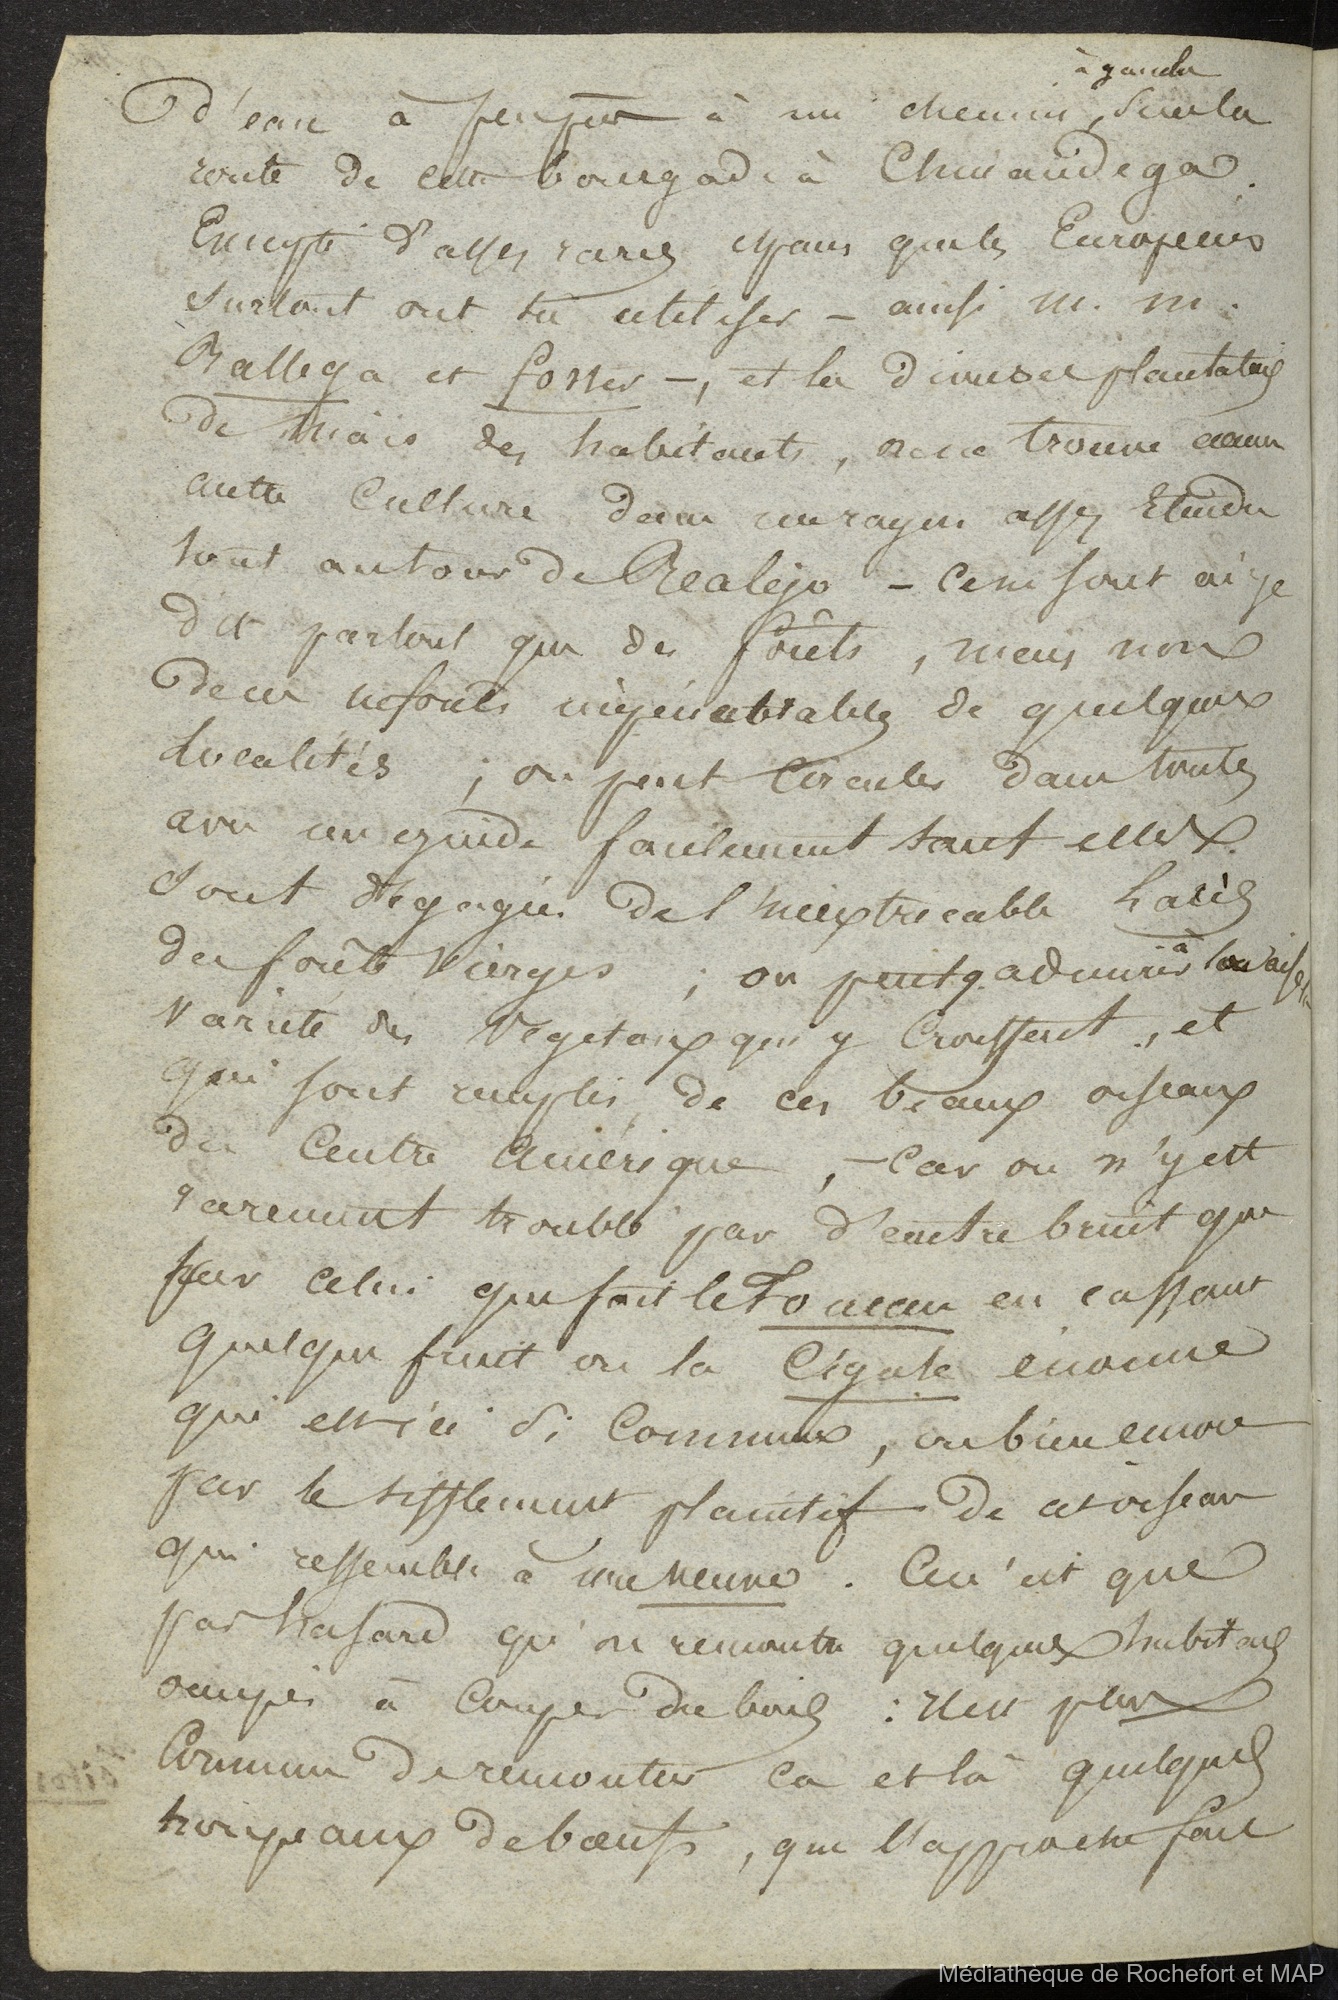 à gauche
d'eau à peu près à mi chemin, sur la
route de cette bourgade à Chinandega.
Excepté d'assez rares espaces que les Européens
surtout ont su utiliser - ainsi M. M.
Ballega et Foster -, et les diverses plantations
de maïs des habitants, on ne trouve aucune
autre culture dans un rayon assez étendu
tout autour de Realejo - ce ne sont ai-je
dit partout que des forêts, mais non
de ces forêts impénétrables de quelques
localités ; on peut circuler dans toutes
avec un guide facilement tant elles
sont dégagées de l'inextricable lacis
des forêts vierges ; on peut y admirer à son aise la
variété des végétaux qui y croissent, et
qui sont remplis de ces beaux oiseaux
du Centre Amérique, - car on n'y est
rarement troublé par d'autre bruit que
par celui que fait le Toucan en cassant
quelque fruit ou la Cigale énorme
qui est ici si commune, ou bien encore
par le sifflement plaintif de cet oiseau
qui ressemble à une veuve. Ce n'est que
par hasard qu'on rencontre quelques habitans
occupés à couper du bois : il est plus
commun de rencontrer ça et là quelques
troupeaux de bœufs, que l'approche fait
Médiathèque de Rochefort et MAP